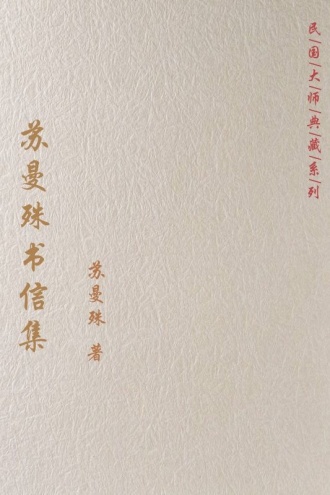 民国大师典藏系列
苏曼殊书信集
苏曼殊 著